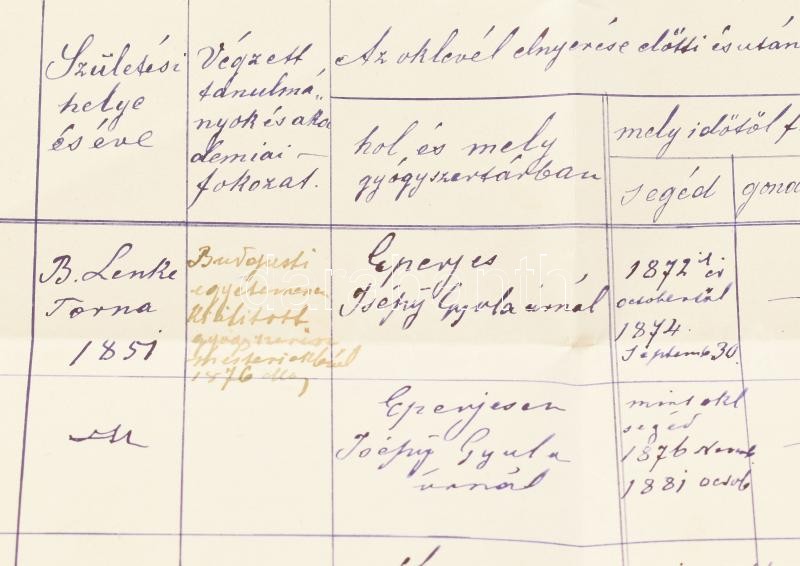 Születési
helye
és éve
Végzett
tanulmá„
nyok és aka
demiai –
fokozat.
Az oklevél elnyerése előtti és után
hol és mely
gyógyszertárban
mely időtől
segéd
gond
B. Lenke
Torna
1851
Budapesti
egyetemen
kiállitott
1876
Eperjes
Isépÿ Gyula úrnál
1872 ik év
octobertől
1874.
Septemb 30.
Eperjesen
Isépÿ Gyula
úrnál
mint okl
segéd
1876 Novemb.
1881 octob.